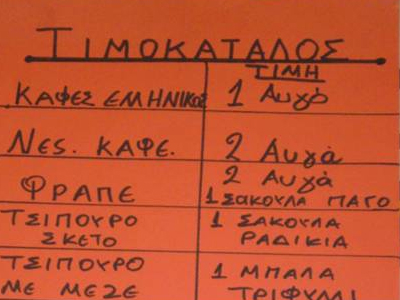 ΤΙΜΟΚΑΤΑΛΟΣ
ΤΙΜΗ
ΚΑΦΕΣ ΕΛΗΝΙΚΟΣ 1 Αυγό
ΝΕS. ΚΑΦΕ. 2 Αυγά
ΦΡΑΠΕ 2 Αυγά
1 ΣΑΚΟΥΛΑ ΠΑΓΟ
ΤΣΙΠΟΥΡΟ 1 ΣΑΚΟΥΛΑ
ΣΚΕΤΟ ΡΑΔΙΚΙΑ
ΤΣΙΠΟΥΡΟ 1 ΜΠΑΛΑ
ΜΕ ΜΕΖΕ ΤΡΙΦΥΛΛΙ